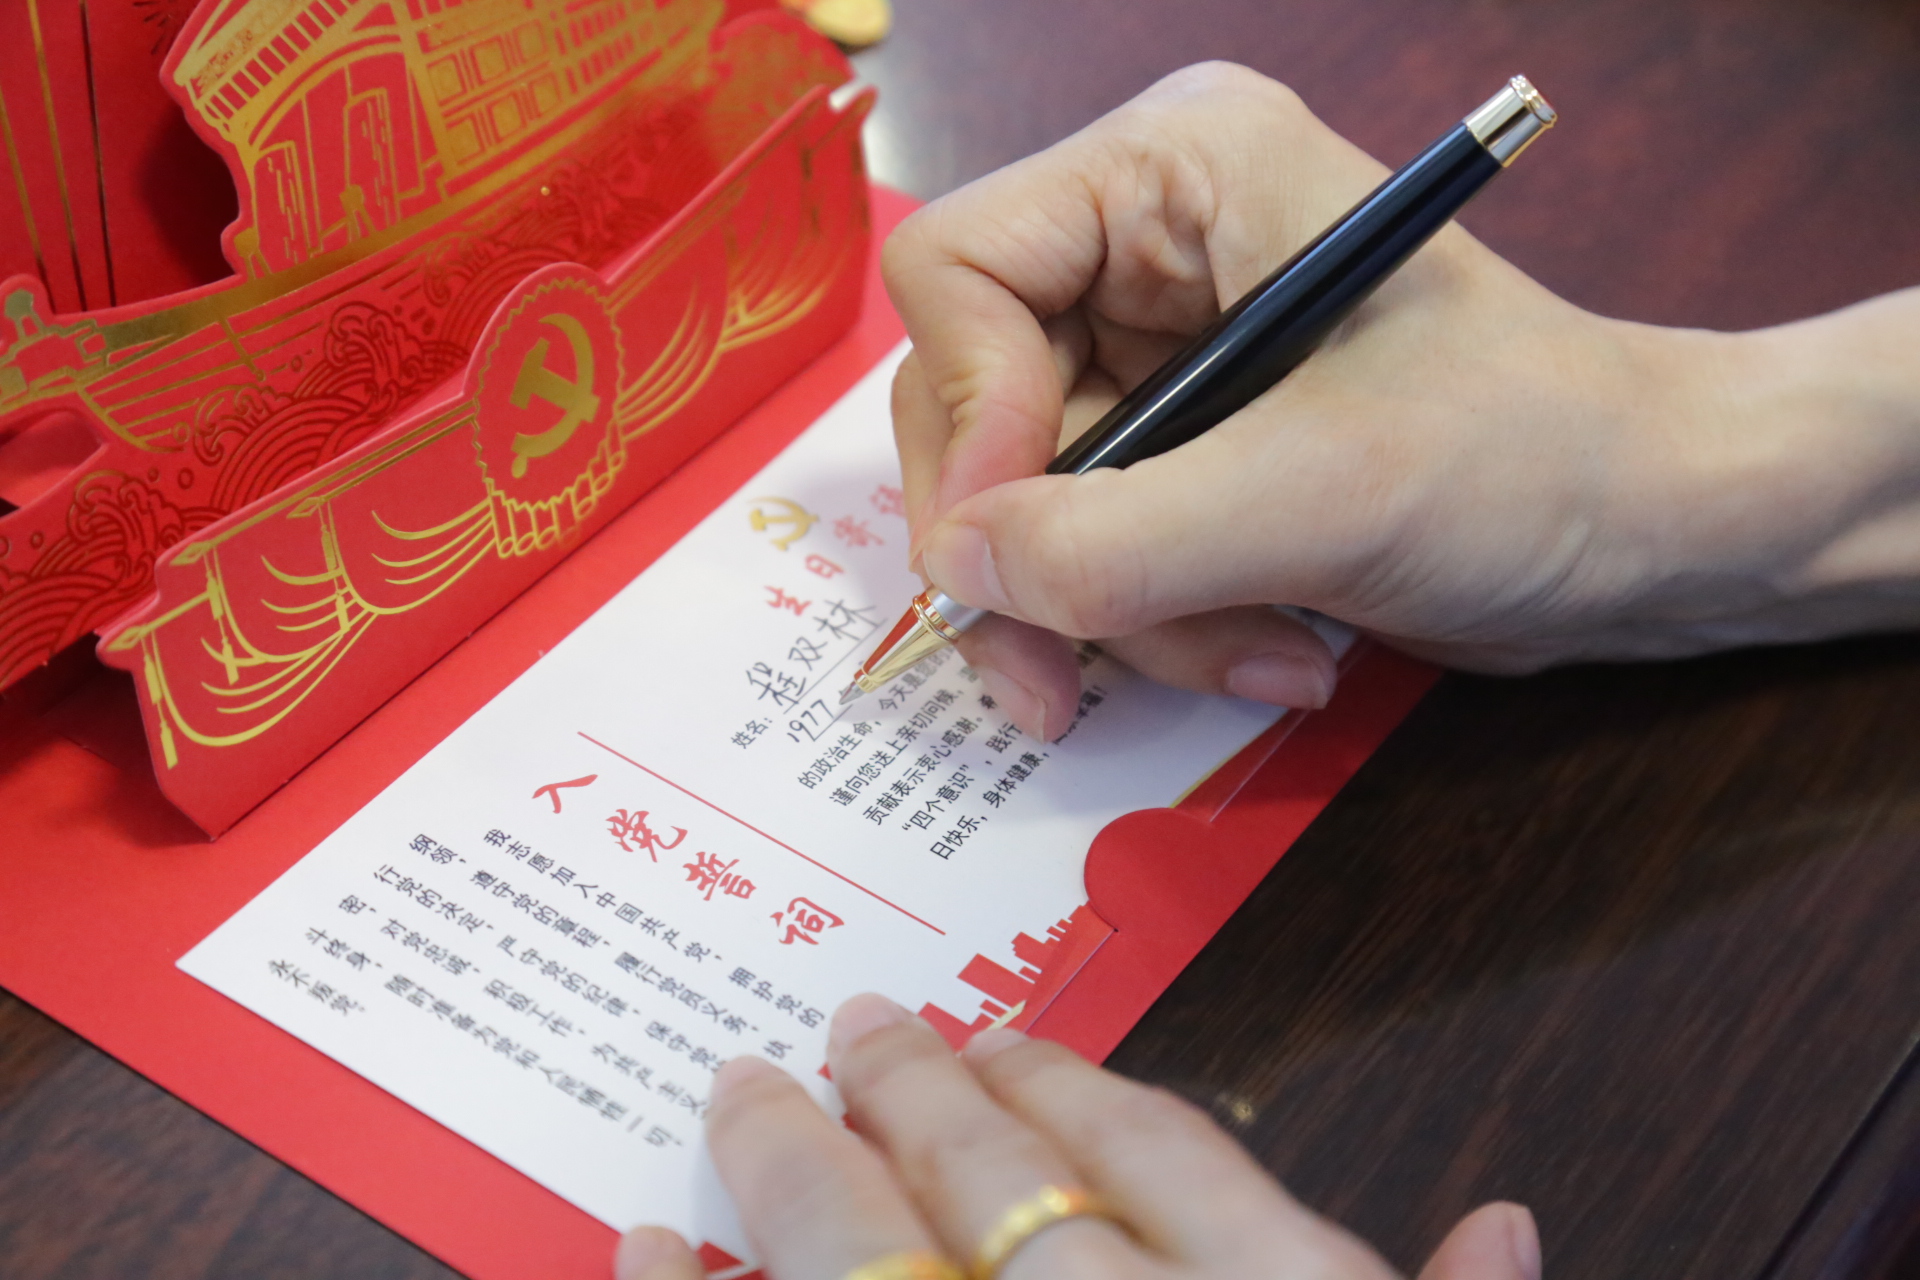 生日寄语
姓名：程双林
1977
今天是您的
的政治生命，
谨向您送上亲切问候，
贡献表示衷心感谢。
“四个意识”，践行
日快乐，身体健康，
入党誓词
我志愿加入中国共产党，拥护党的
纲领，遵守党的章程，履行党员义务，执
行党的决定，严守党的纪律，保守党
密，对党忠诚，积极工作，为共产主义
斗终身，随时准备为党和人民牺牲一切，
永不叛党。